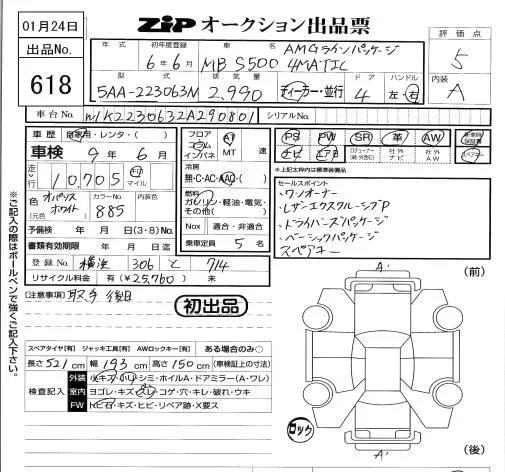 01月24日
出品No.
618
ZIP オークション出品票
評価点
5
内装
A
年式
初年度登録
6年6月
車名
MB S500
AMGラインパッケージ
4MATIC
型式
5AA-223063M
排気量
2.990
ディーラー・並行
ドア
4
ハンドル
左・右
車台No.
W1K2230632A290801
シリアルNo.
車歴
自家用・レンタ・( )
車検
9年6月
走行
10,705
km
マイル
色
(元色)
オパリス
ホワイト
カラーNo.
885
内装色
予備検 年 月 日(3・8)No.
書類有効期限 年 月 日迄
登録No.
横浜 306 と 714
リサイクル料金 有(¥25,760) 未
フロア
コラム
インパネ
AT
MT
速
冷房
無・C・AC・AAC・( )
燃料
ガソリン・軽油・電気・
その他( )
Nox
適合・非適合
乗車定員 5 名
PS
PW
SR
革
AW
ナビ
エアB
社外
ナビ
社外
AW
スペアキー
※上記太枠内は標準装備品
セールスポイント
・ワンオーナー
・レザーエクスクルーシブP
・ドライバーズパッケージ
・ベーシックパッケージ
スペアキー
[注意事項]
取手 後日
初出品
※ご記入の際はボールペンで強くご記入下さい。
スペアタイヤ[有] ジャッキ工具[有] AWロックキー[有] ある場合のみ○
長さ 521 cm 幅 193 cm 高さ 150 cm (車検証上の寸法)
検査記入
外装
小キズ・小凹・シミ・ホイルA・ドアミラー(A・ワレ)
室内
ヨゴレ・キズ・スレ・コゲ・穴・キレ・破れ・ウキ
FW
トビ石・キズ・ヒビ・リペア跡・X要ス
A'
(前)
ロック
A'
(後)